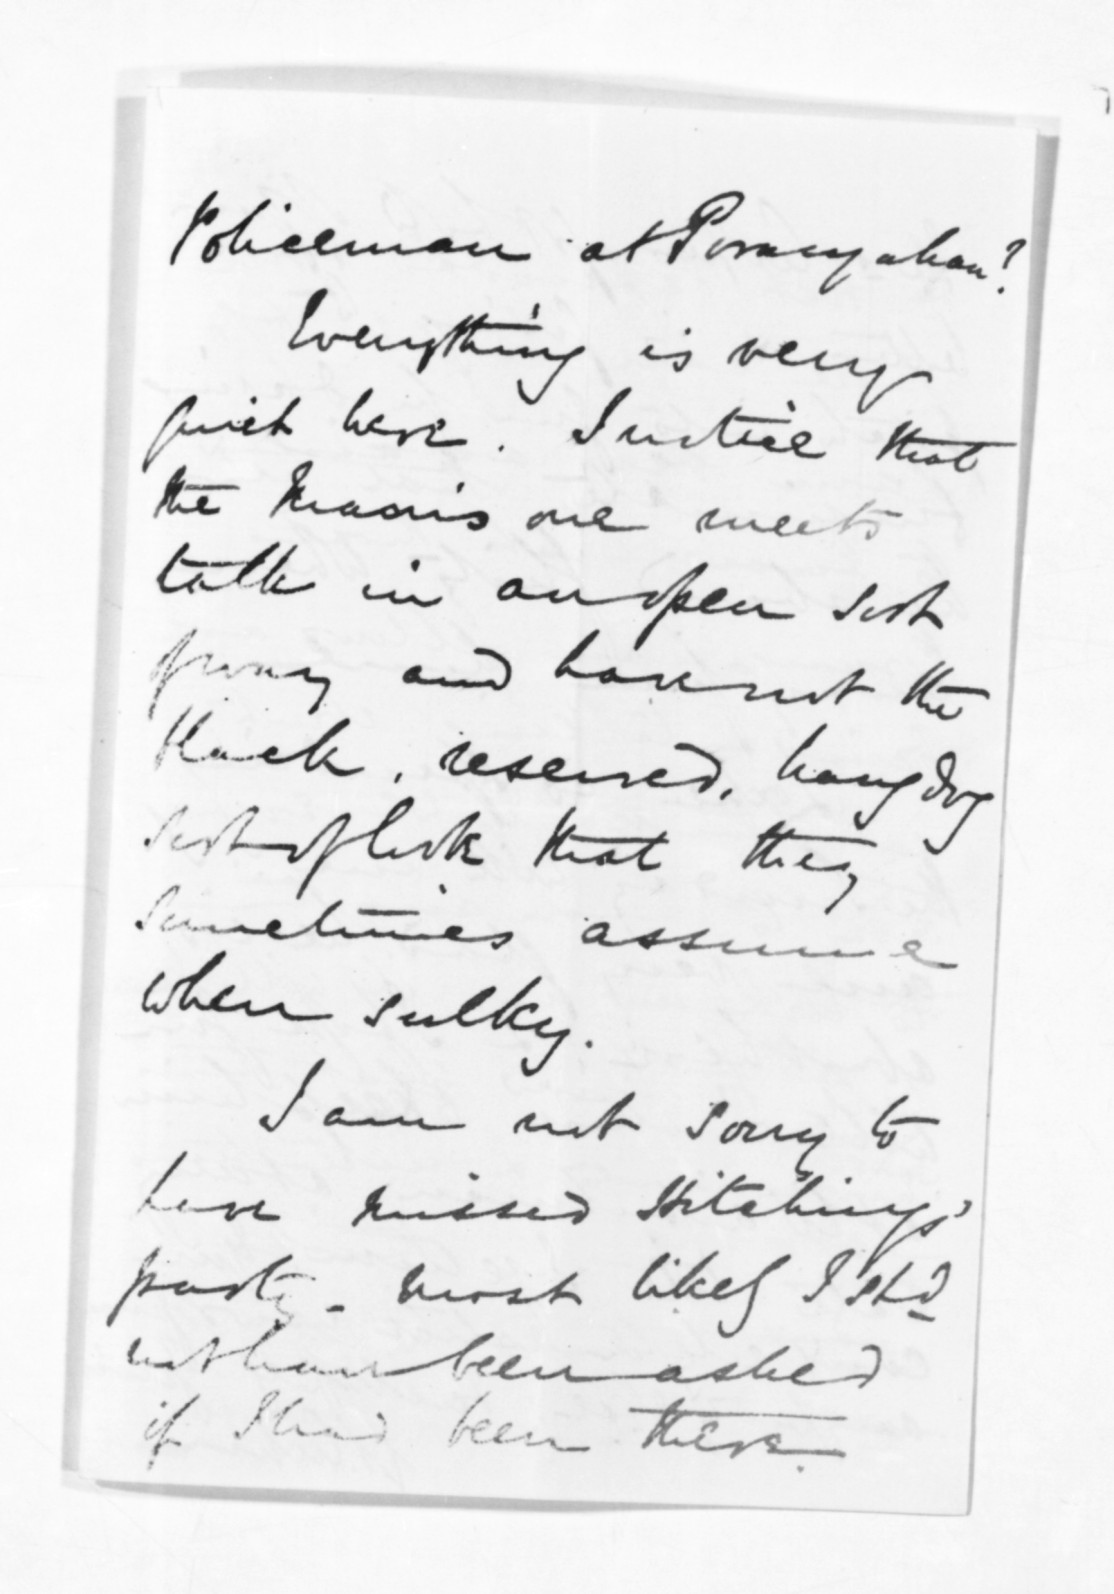 Policeman at Porangahau?
Everything is very
quiet here. I notice that
the Maoris one meets
talk in an open sort
of way and have not the
black, reserved, hangdog
sort of look that they
sometimes assume
when sulky.
I am not sorry to
have missed Hitchings'
party - most likely I shd
not have been asked
if I had been there.